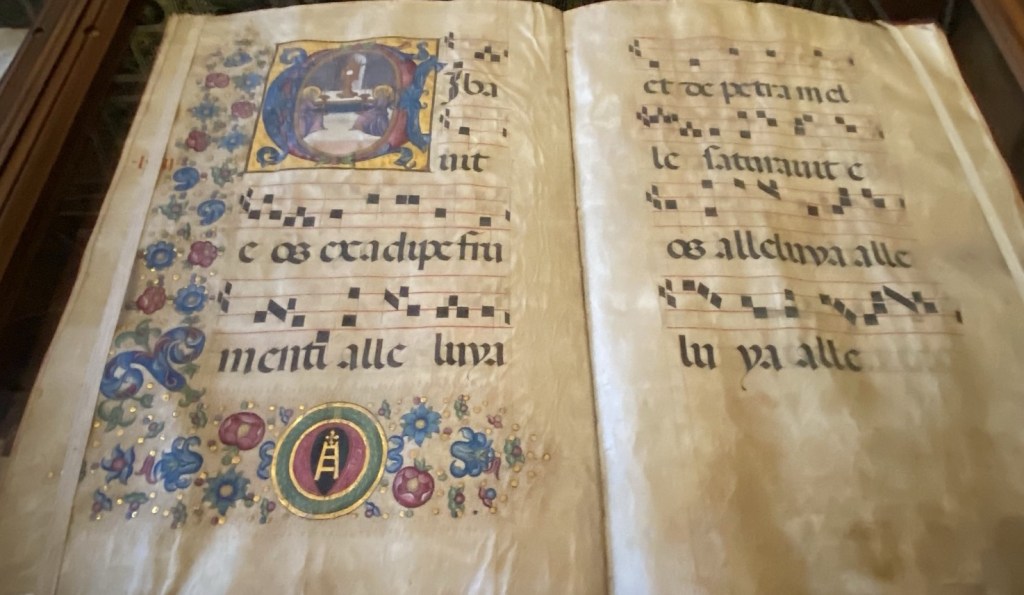 Ciba
uit
e os ex adipe fru
menti alle luya
et de petra mel
le saturauit e
os alleluya alle
lu ya alle